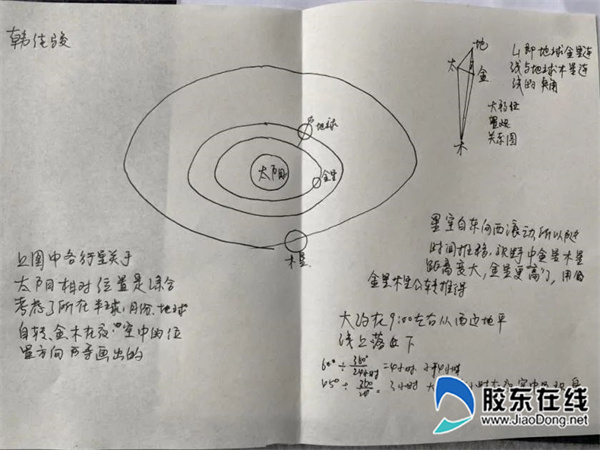 韩佳骏
地
太
金
木
∠1即地球金星连
线与地球木星连
线的夹角
大致位
置观
关系图
地球
太阳
金星
木星
上图中各行星关于
太阳相对位置是综合
考虑了所在半球、月份、地球
自转、金木在夜空中的位
置方向等画出的
星空自东向西滚动,所以随
时间推移,视野中金星木星
距离变大,金星更高了,用
金星木星公转推得
大约在9:00左右从西边地平
线上落下
60° ÷ 360°/24小时 = 4小时
45° ÷ 360/24 = 3小时
胶东在线
www.JiaoDong.net